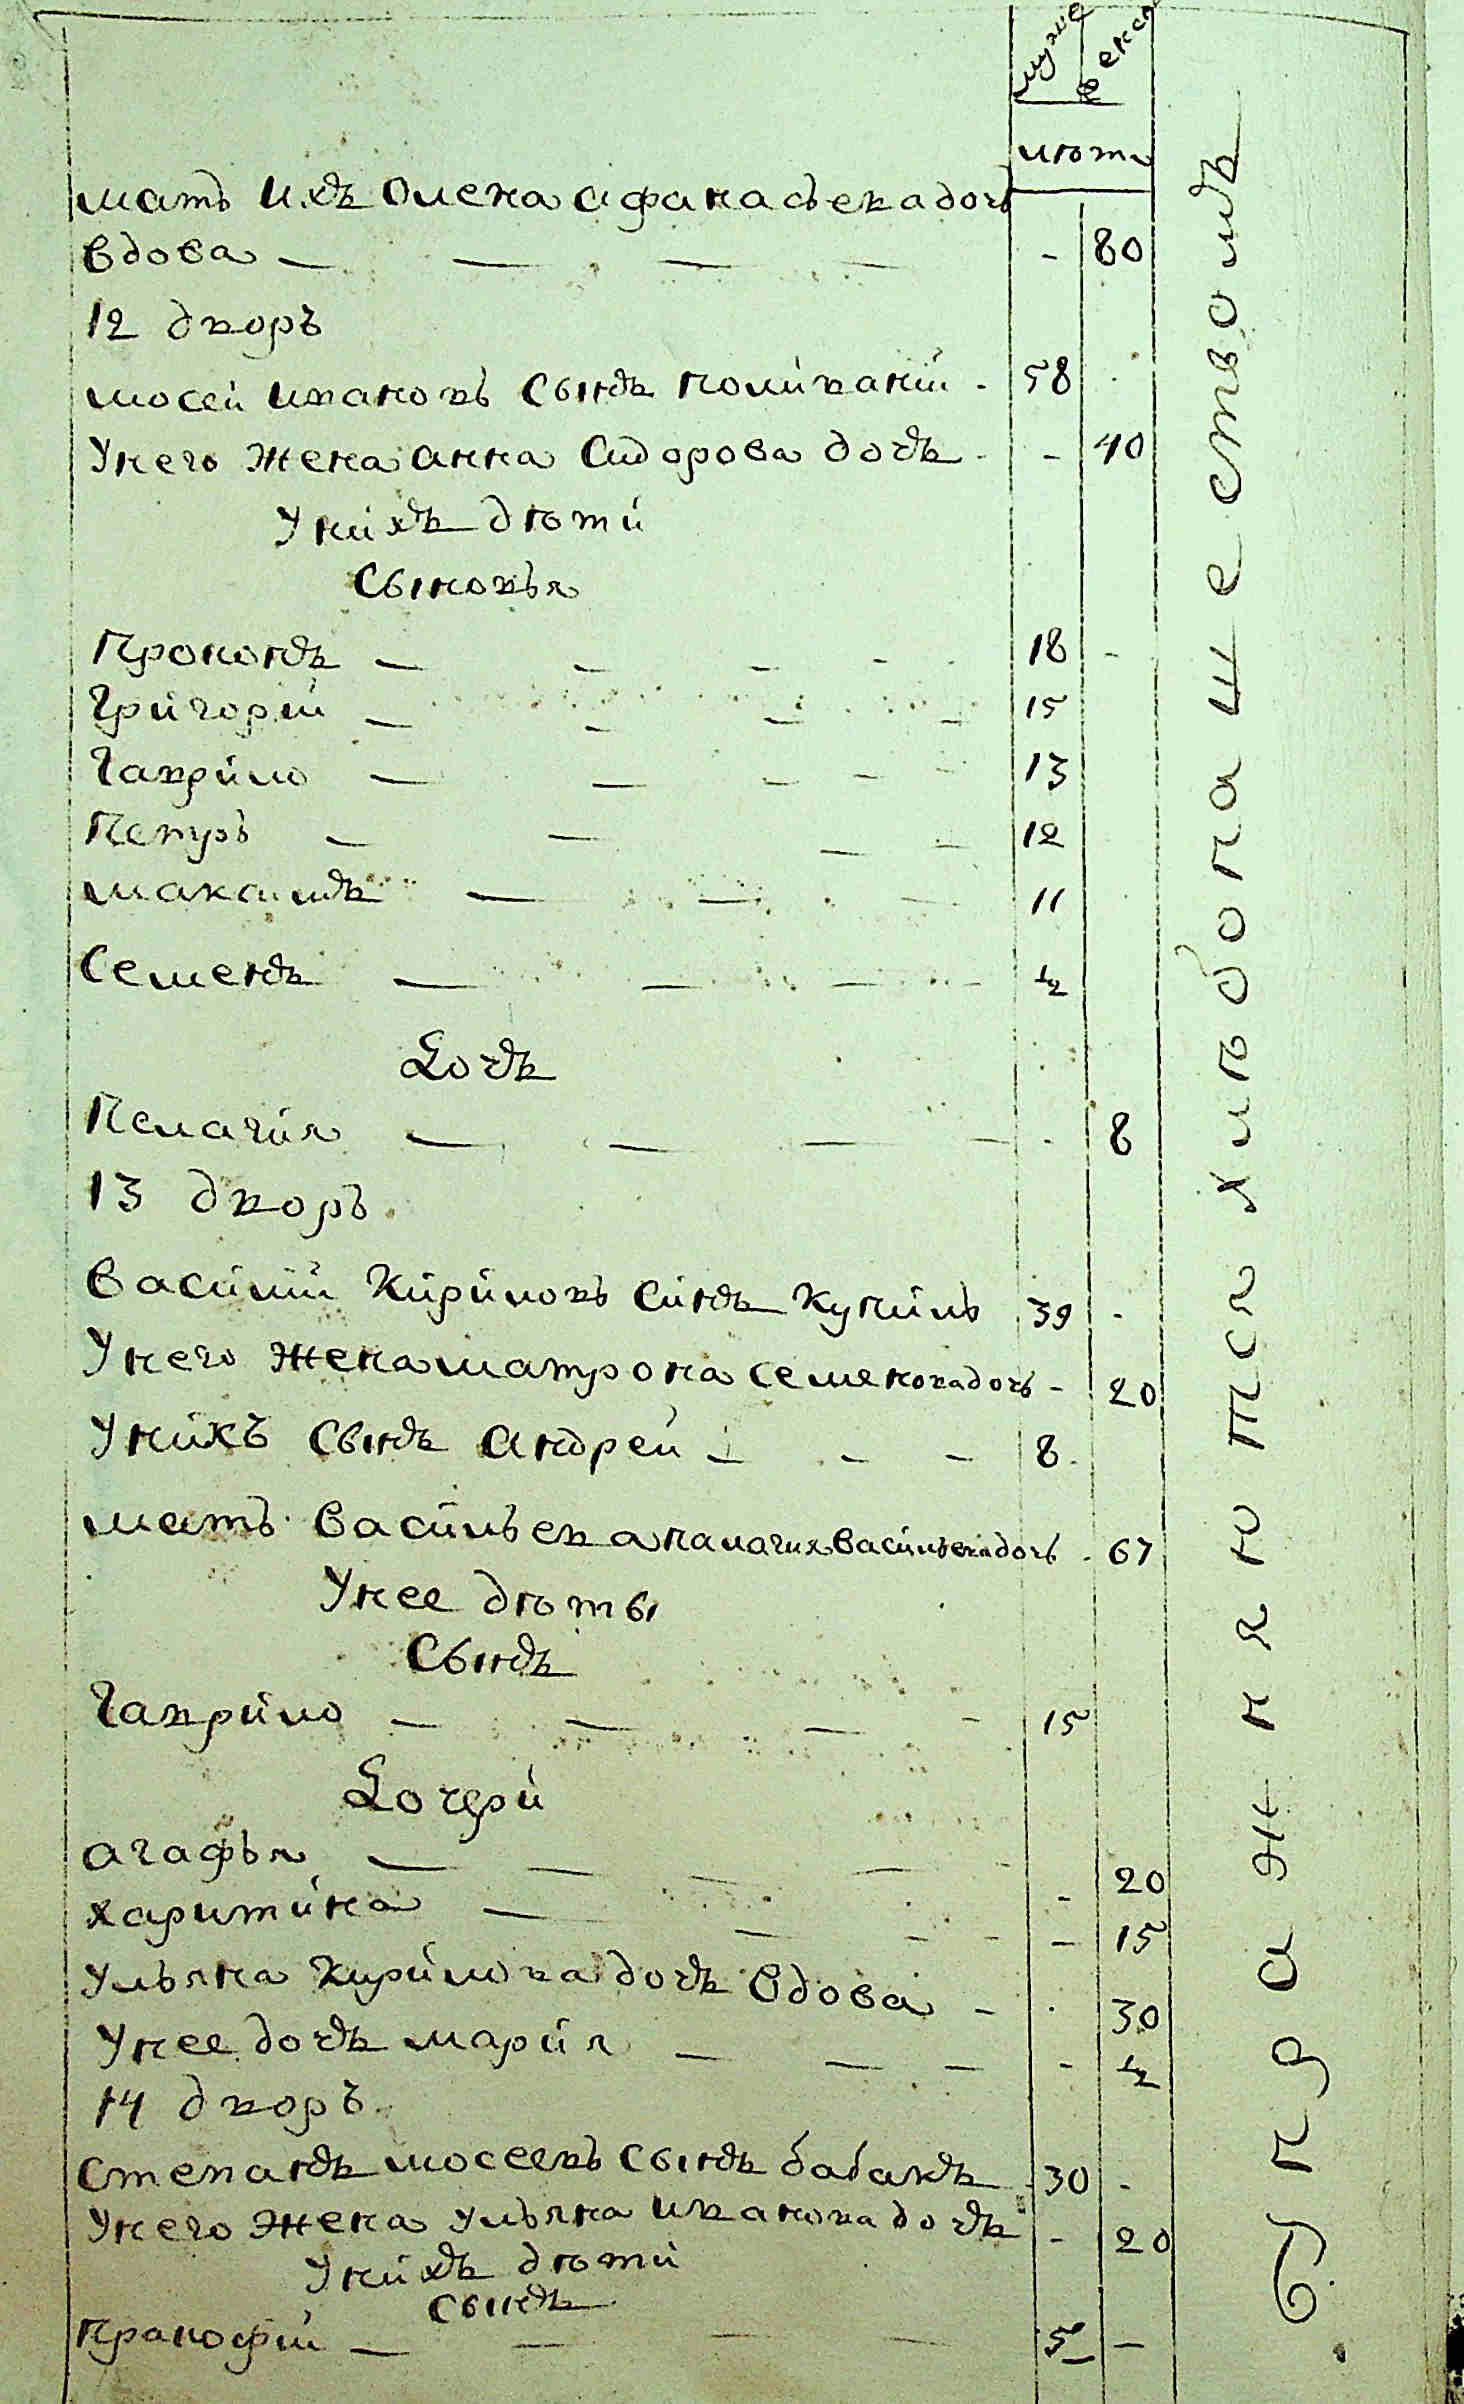 муже женс
лѣта
мать ихъ Олена афанасьева дочь
вдова — — — — - 80
12 дворъ
мосей ивановъ сынъ поливаний - 58 -
У него жена анна Сидорова дочь - - 40
У нихъ дѣти
Сыновья
Проконъ — — — - 18 -
Григорий — — — - 15
Гаврило — — — - - 13
Петръ — — — - 12
максимъ — — — 11
Семенъ — — — - ½
Дочь
Пелагия — — — - - 8
13 дворъ
Василий Кириловъ синъ Купинъ 39 -
У него жена матрона семенова дочь - 20
У нихъ сынъ андрей - - - 8
мать Васильева палагия Васильева дочь - 67
У нее дѣты
Сынъ
Гаврило — — — - 15
Дочери
агафья — — — — - 20
харитина — — - - - 15
Ульяна Кирилова дочь вдова - - 30
У нее дочь мария — — - - ½
14 дворъ
Степанъ мосеевъ сынъ бабакъ - 30 -
У него жена ульяна иванова дочь - 20
У нихъ дѣти
сынъ
Пракофий — — — 5 —
Упражняются хлѣбопашествомъ